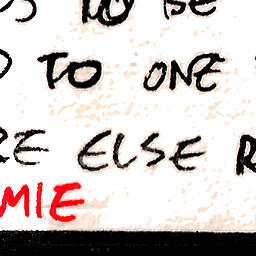 TO BE
TO ONE
RE ELSE R
MIE